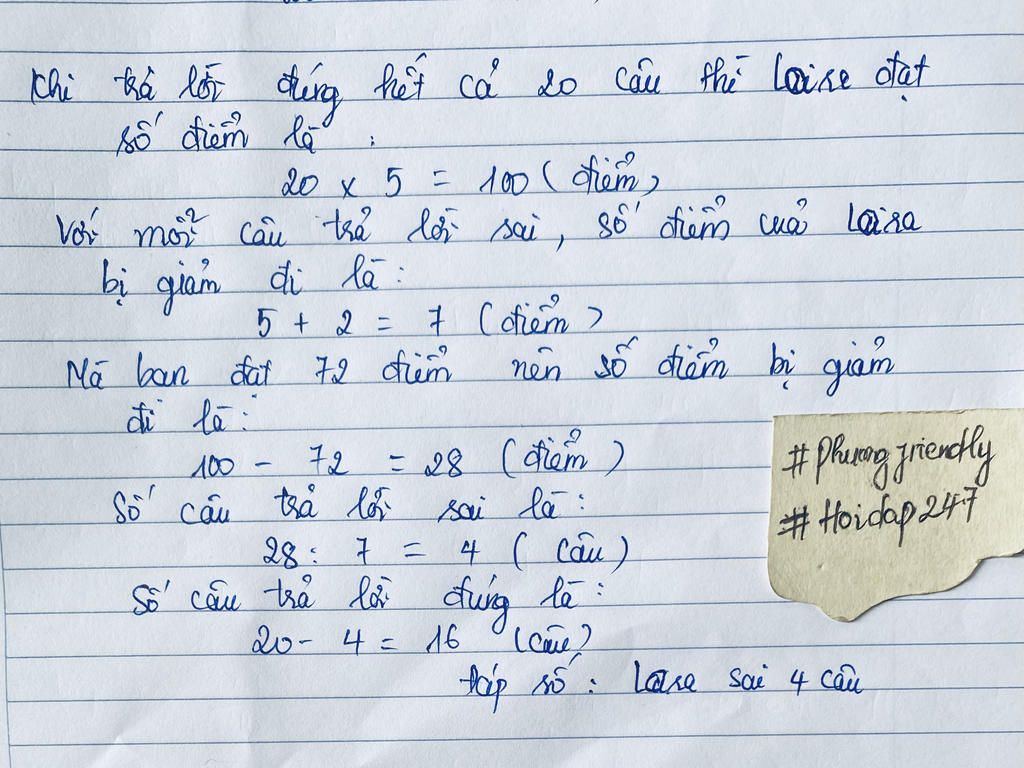 Khi trả lời đúng hết cả 20 câu thì Laise đạt
số điểm là :
20 x 5 = 100 (điểm)
Với mỗi câu trả lời sai, số điểm của Laisa
bị giảm đi là :
5 + 2 = 7 (điểm)
Mà bạn đạt 72 điểm nên số điểm bị giảm
đi là :
100 - 72 = 28 (điểm)
Số câu trả lời sai là :
28 : 7 = 4 (câu)
Số câu trả lời đúng là :
20 - 4 = 16 (câu)
Đáp số : Lasa sai 4 câu
#Phuong friendly
#Hoidap247